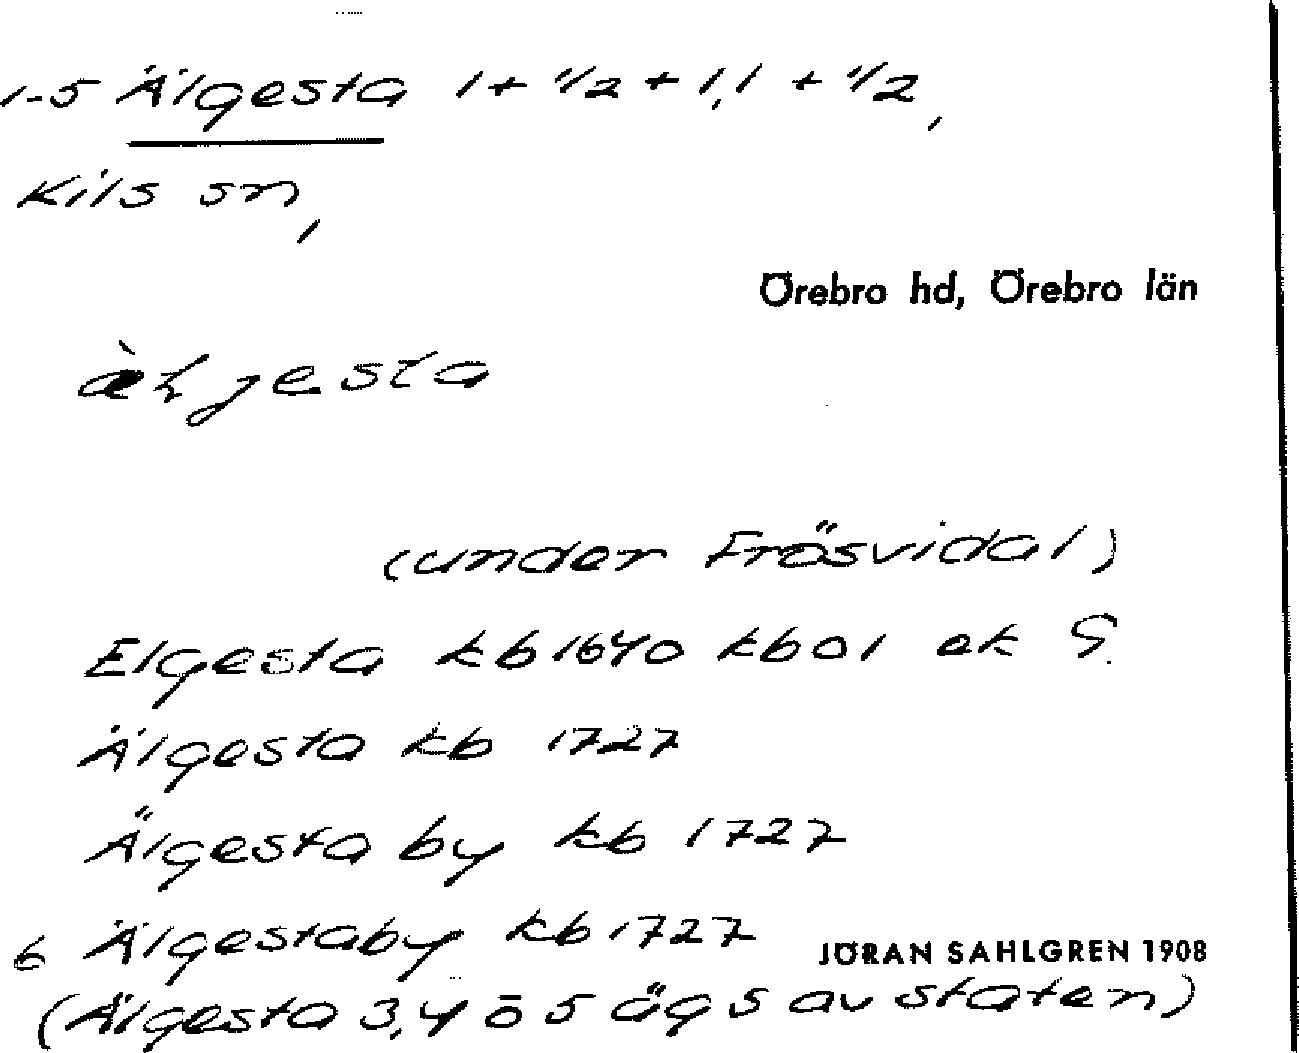 1-5 Älgesta 1 + 1/2 + 1,1 + 1/2,
Kils sn,
Örebro hd, Örebro län
(under Frösvidal)
Elgesta kb 1640 kb 01 ek
Älgesta kb 1727
Älgesta by kb 1727
6 Älgestaby kb 1727
JÖRAN SAHLGREN 1908
(Älgesta 3, 4 o 5 ägs av staten)